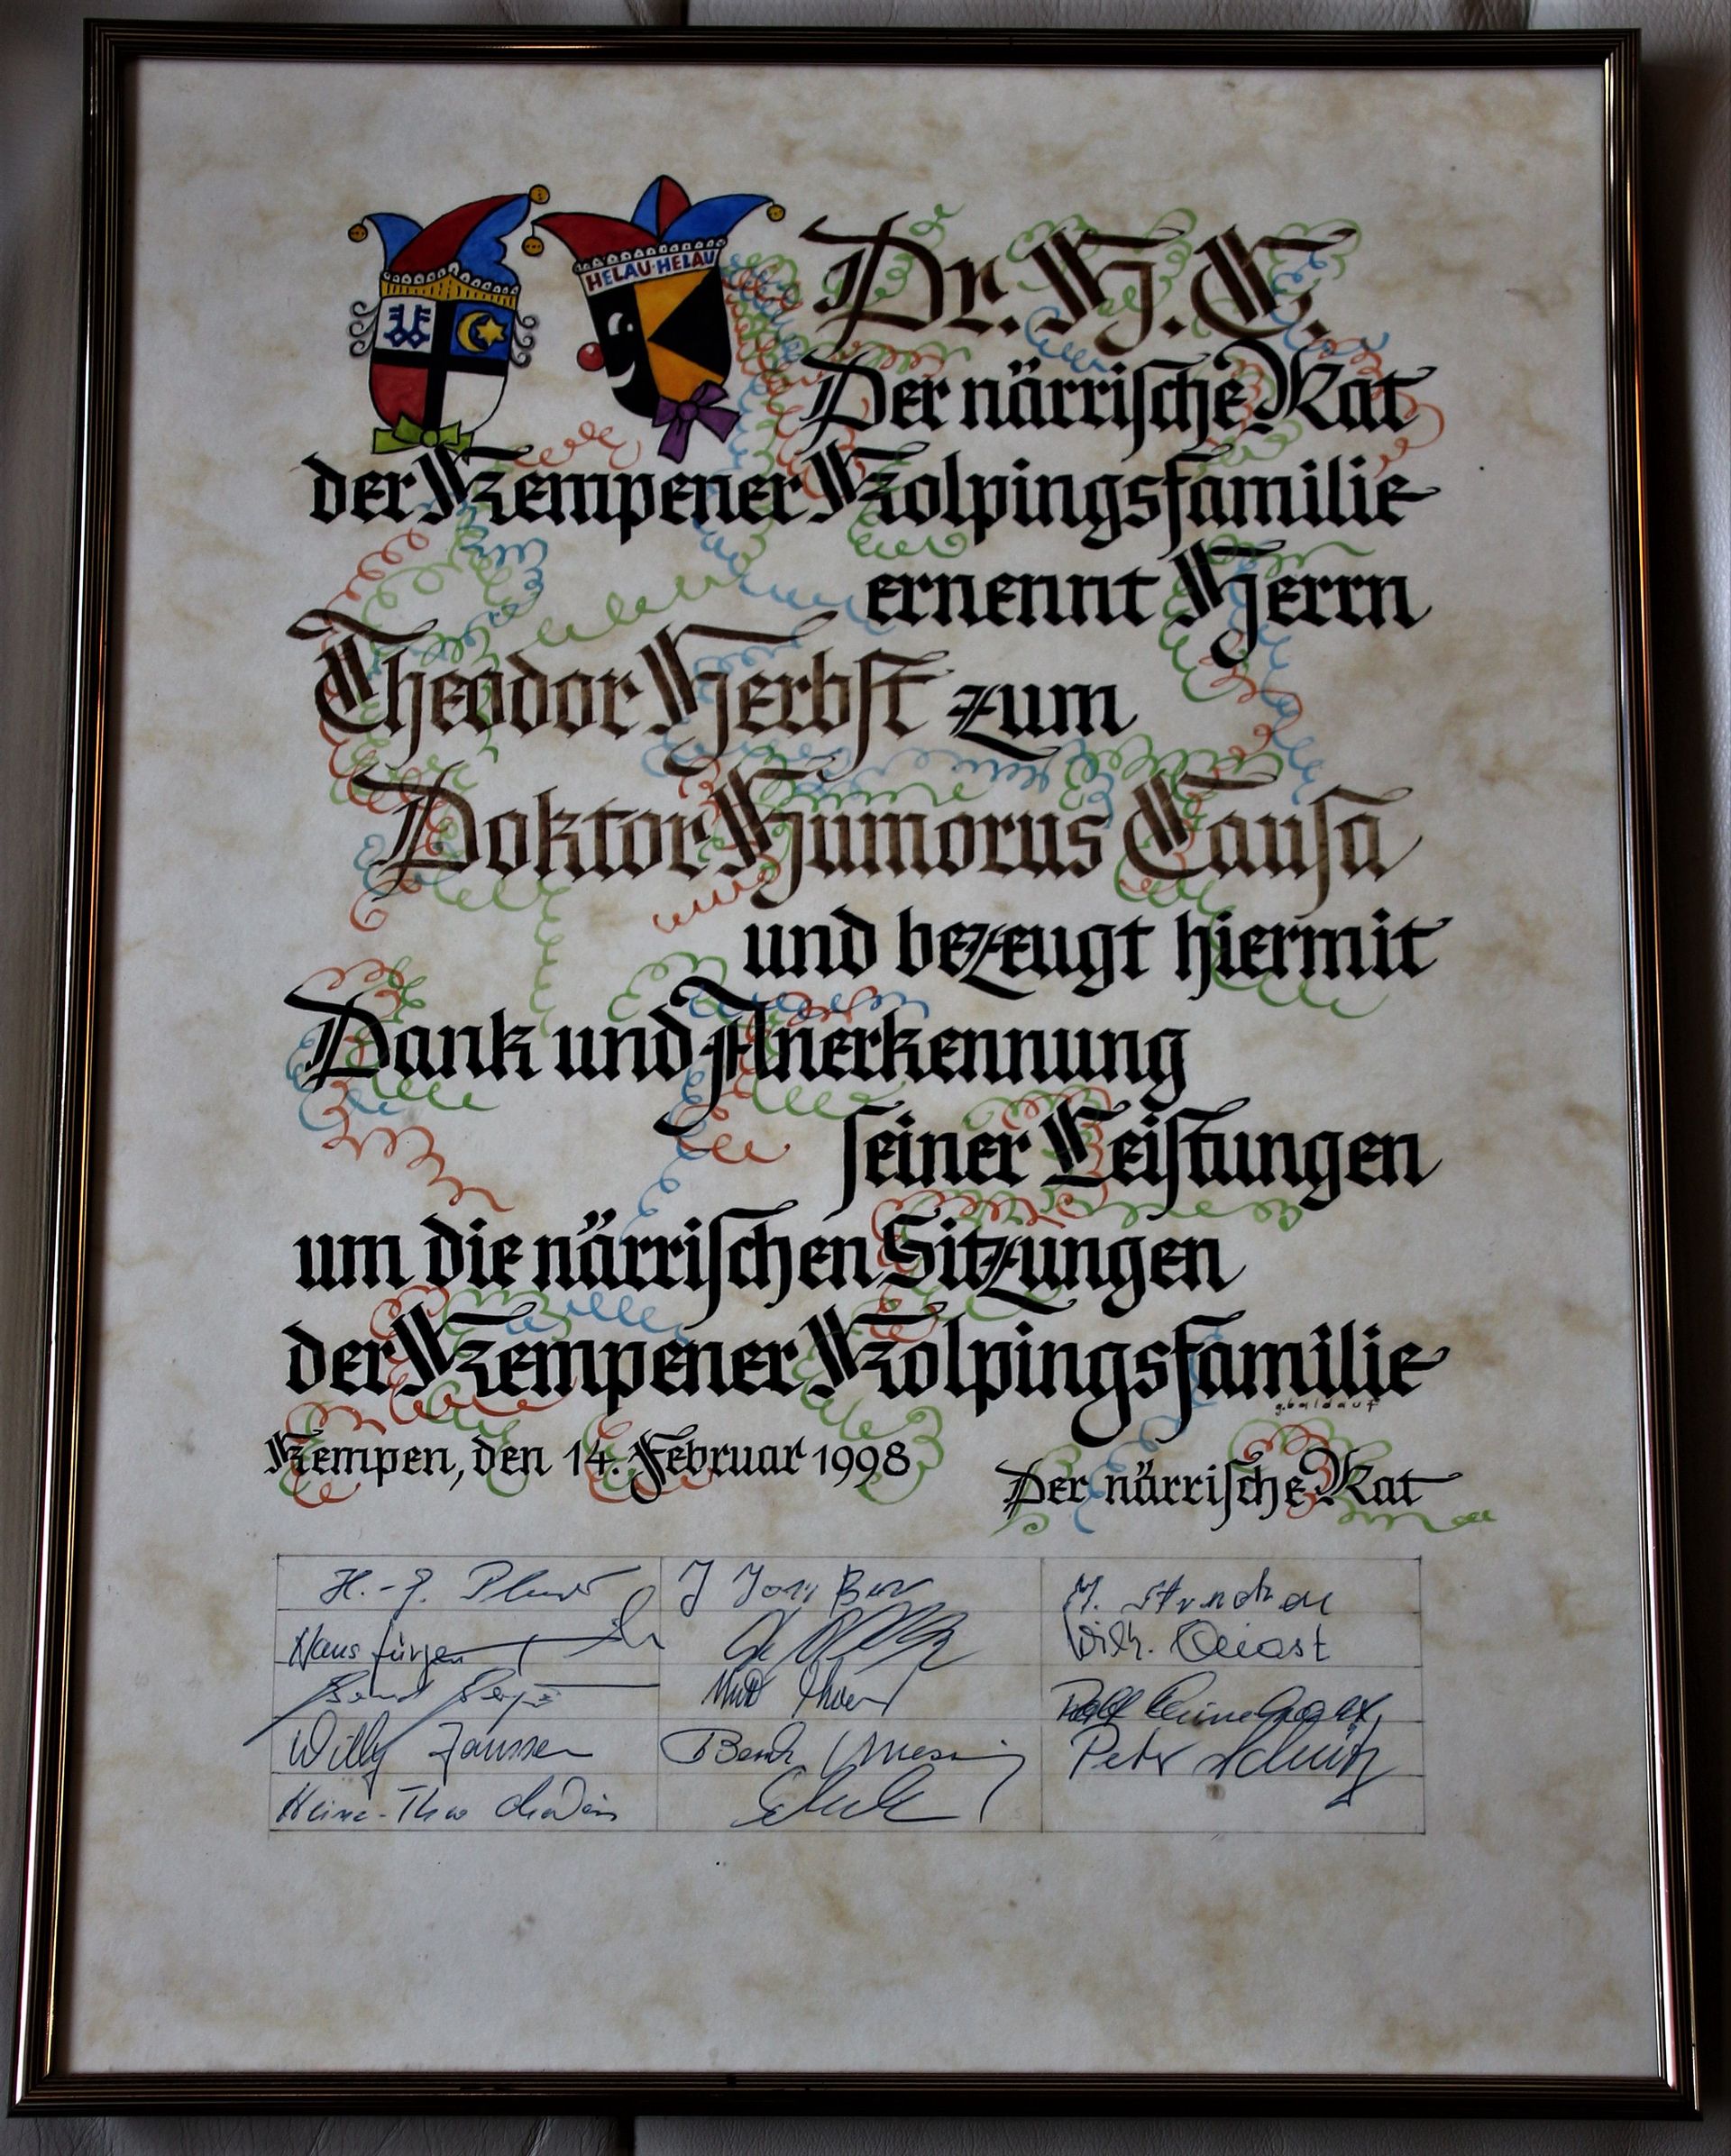 HELAU·HELAU
Dr. H. C.
Der närrische Rat
der Kempener Kolpingsfamilie
ernennt Herrn
Theodor Herbst zum
Doktor Humorus Causa
und bezeugt hiermit
Dank und Anerkennung
seiner Leistungen
um die närrischen Sitzungen
der Kempener Kolpingsfamilie
g.baldauf
Kempen, den 14. Februar 1998
Der närrische Rat
H.-J.
M.
Hans Jürgen
Wilh. Quast
Bernd
Rolf
Willy Janssen
Peter Schmitz
Heinz-Theo